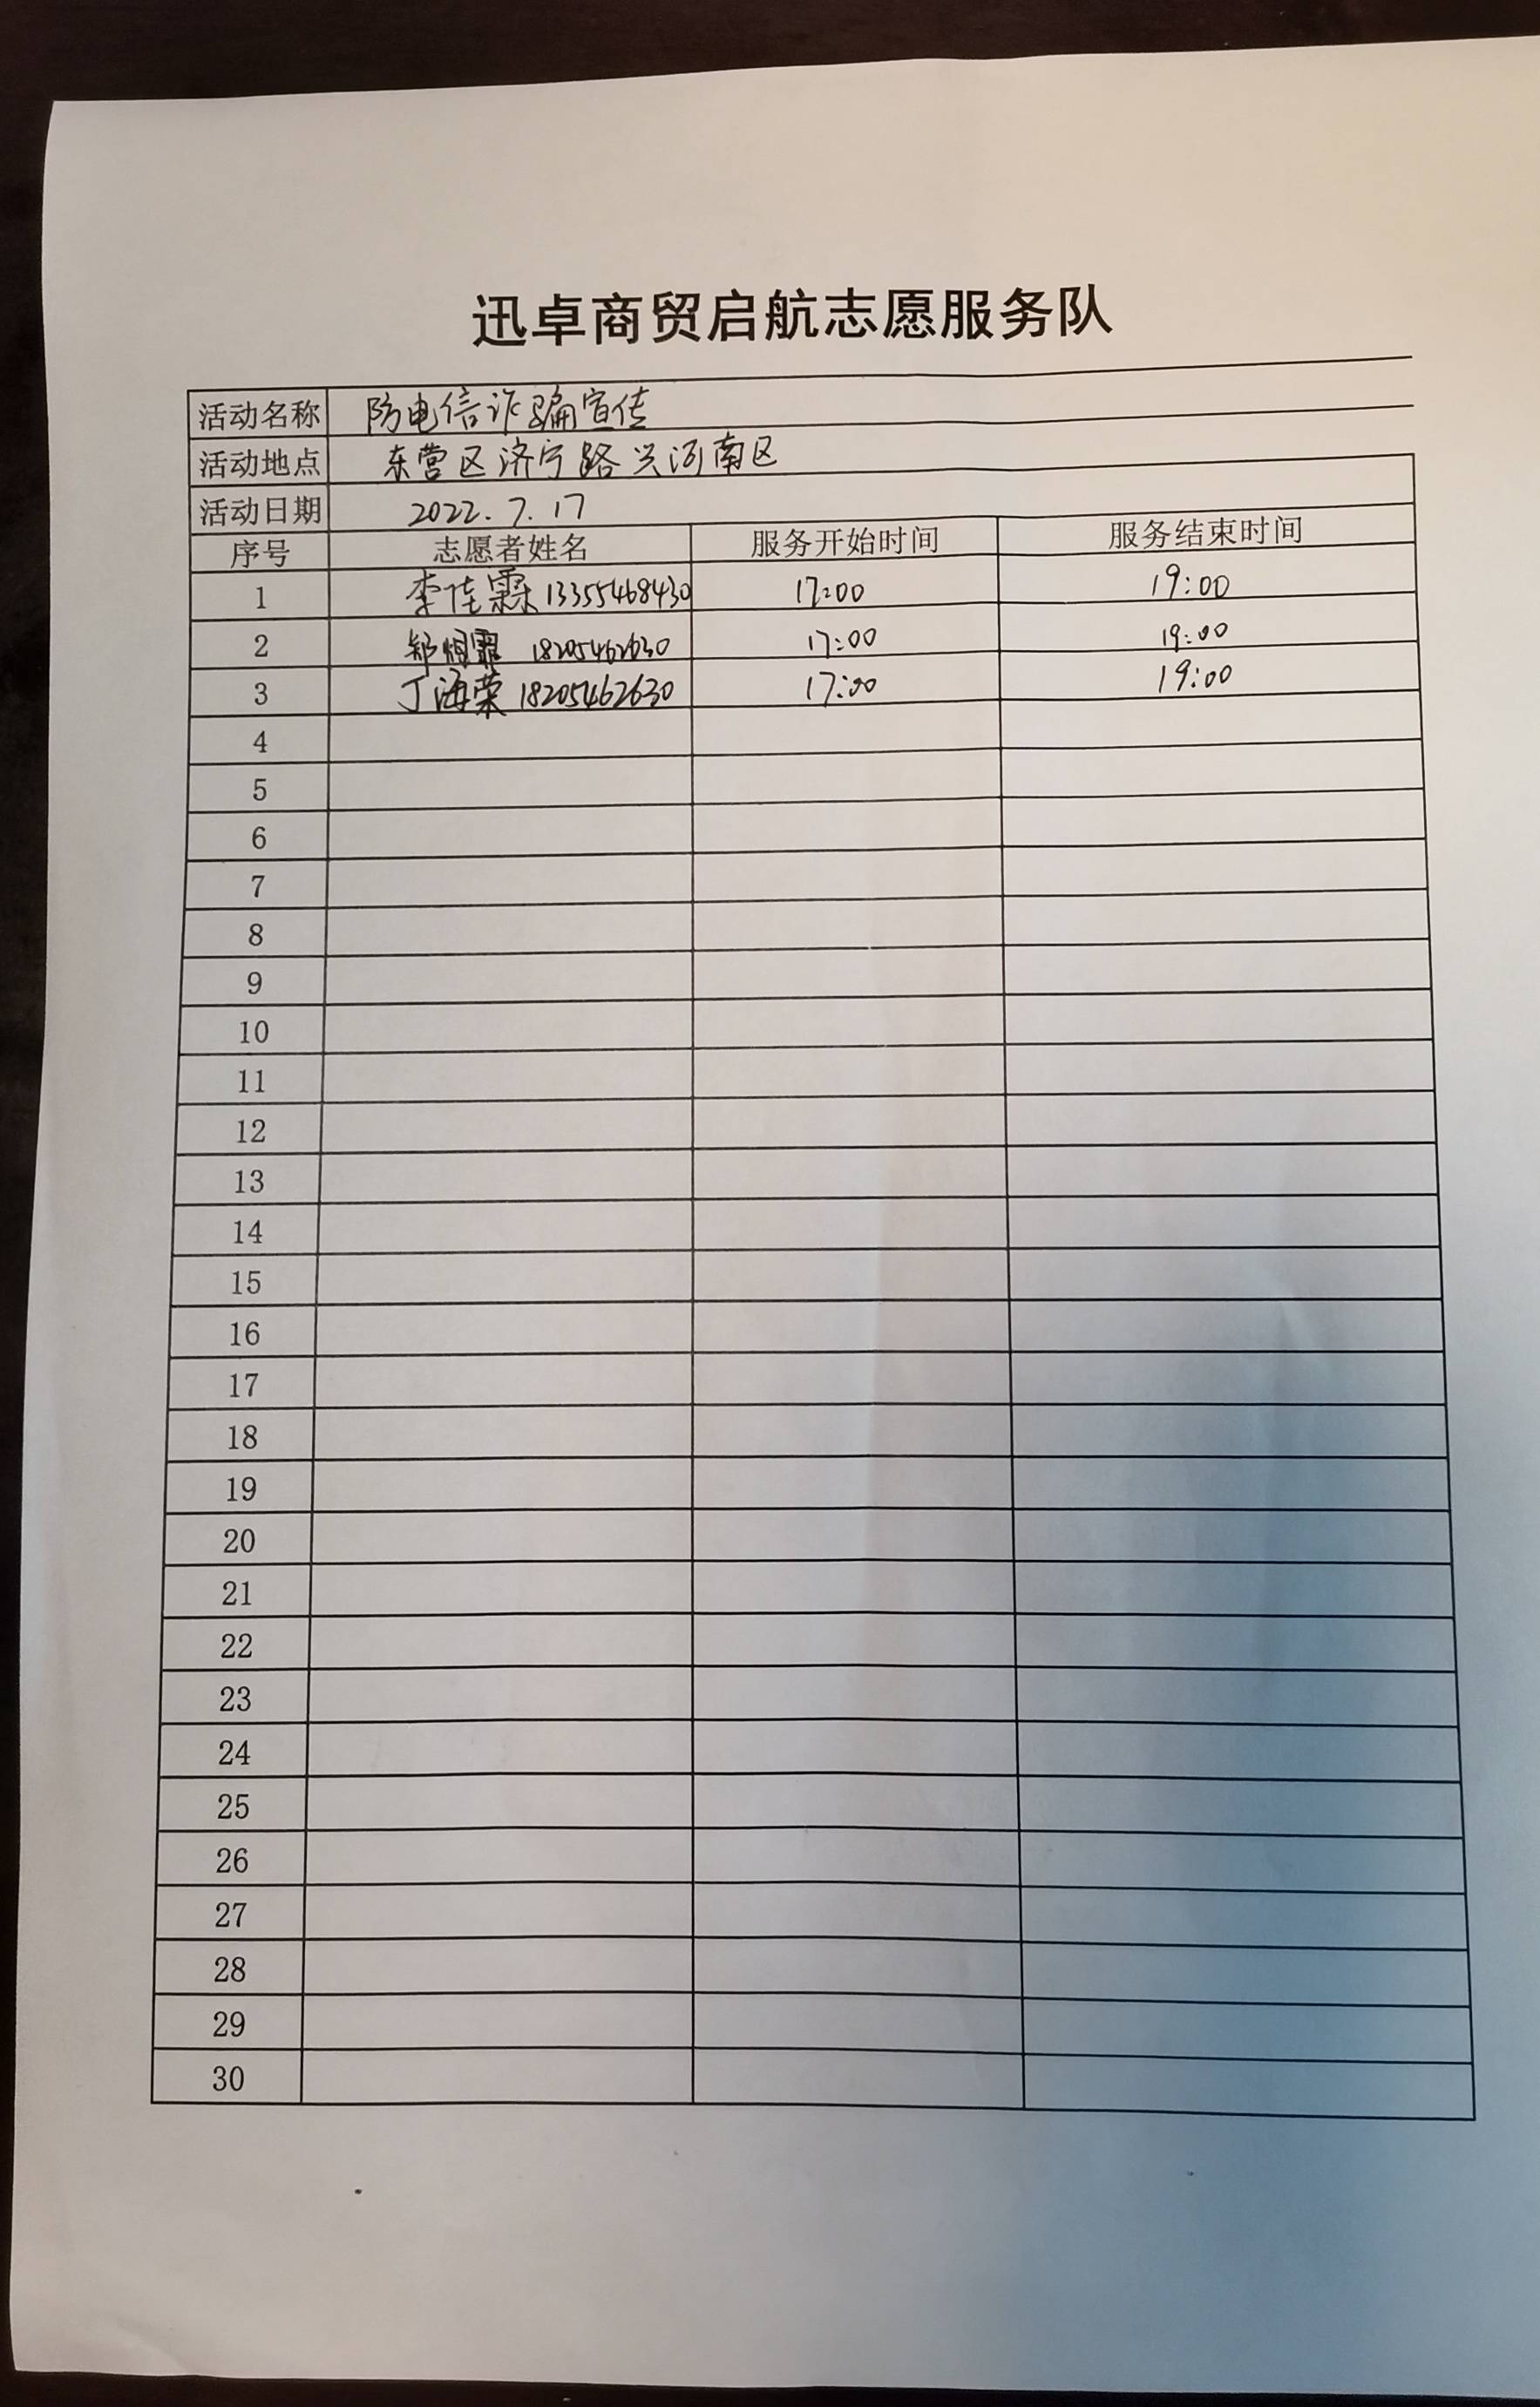 迅卓商贸启航志愿服务队
活动名称 防电信诈骗宣传
活动地点 东营区济宁路兴河南区
活动日期 2022.7.17
序号 志愿者姓名 服务开始时间 服务结束时间
1 李佳霖 13355468430 17:00 19:00
2 郑 18205462630 17:00 19:00
3 丁海荣 18205462630 17:00 19:00
4
5
6
7
8
9
10
11
12
13
14
15
16
17
18
19
20
21
22
23
24
25
26
27
28
29
30